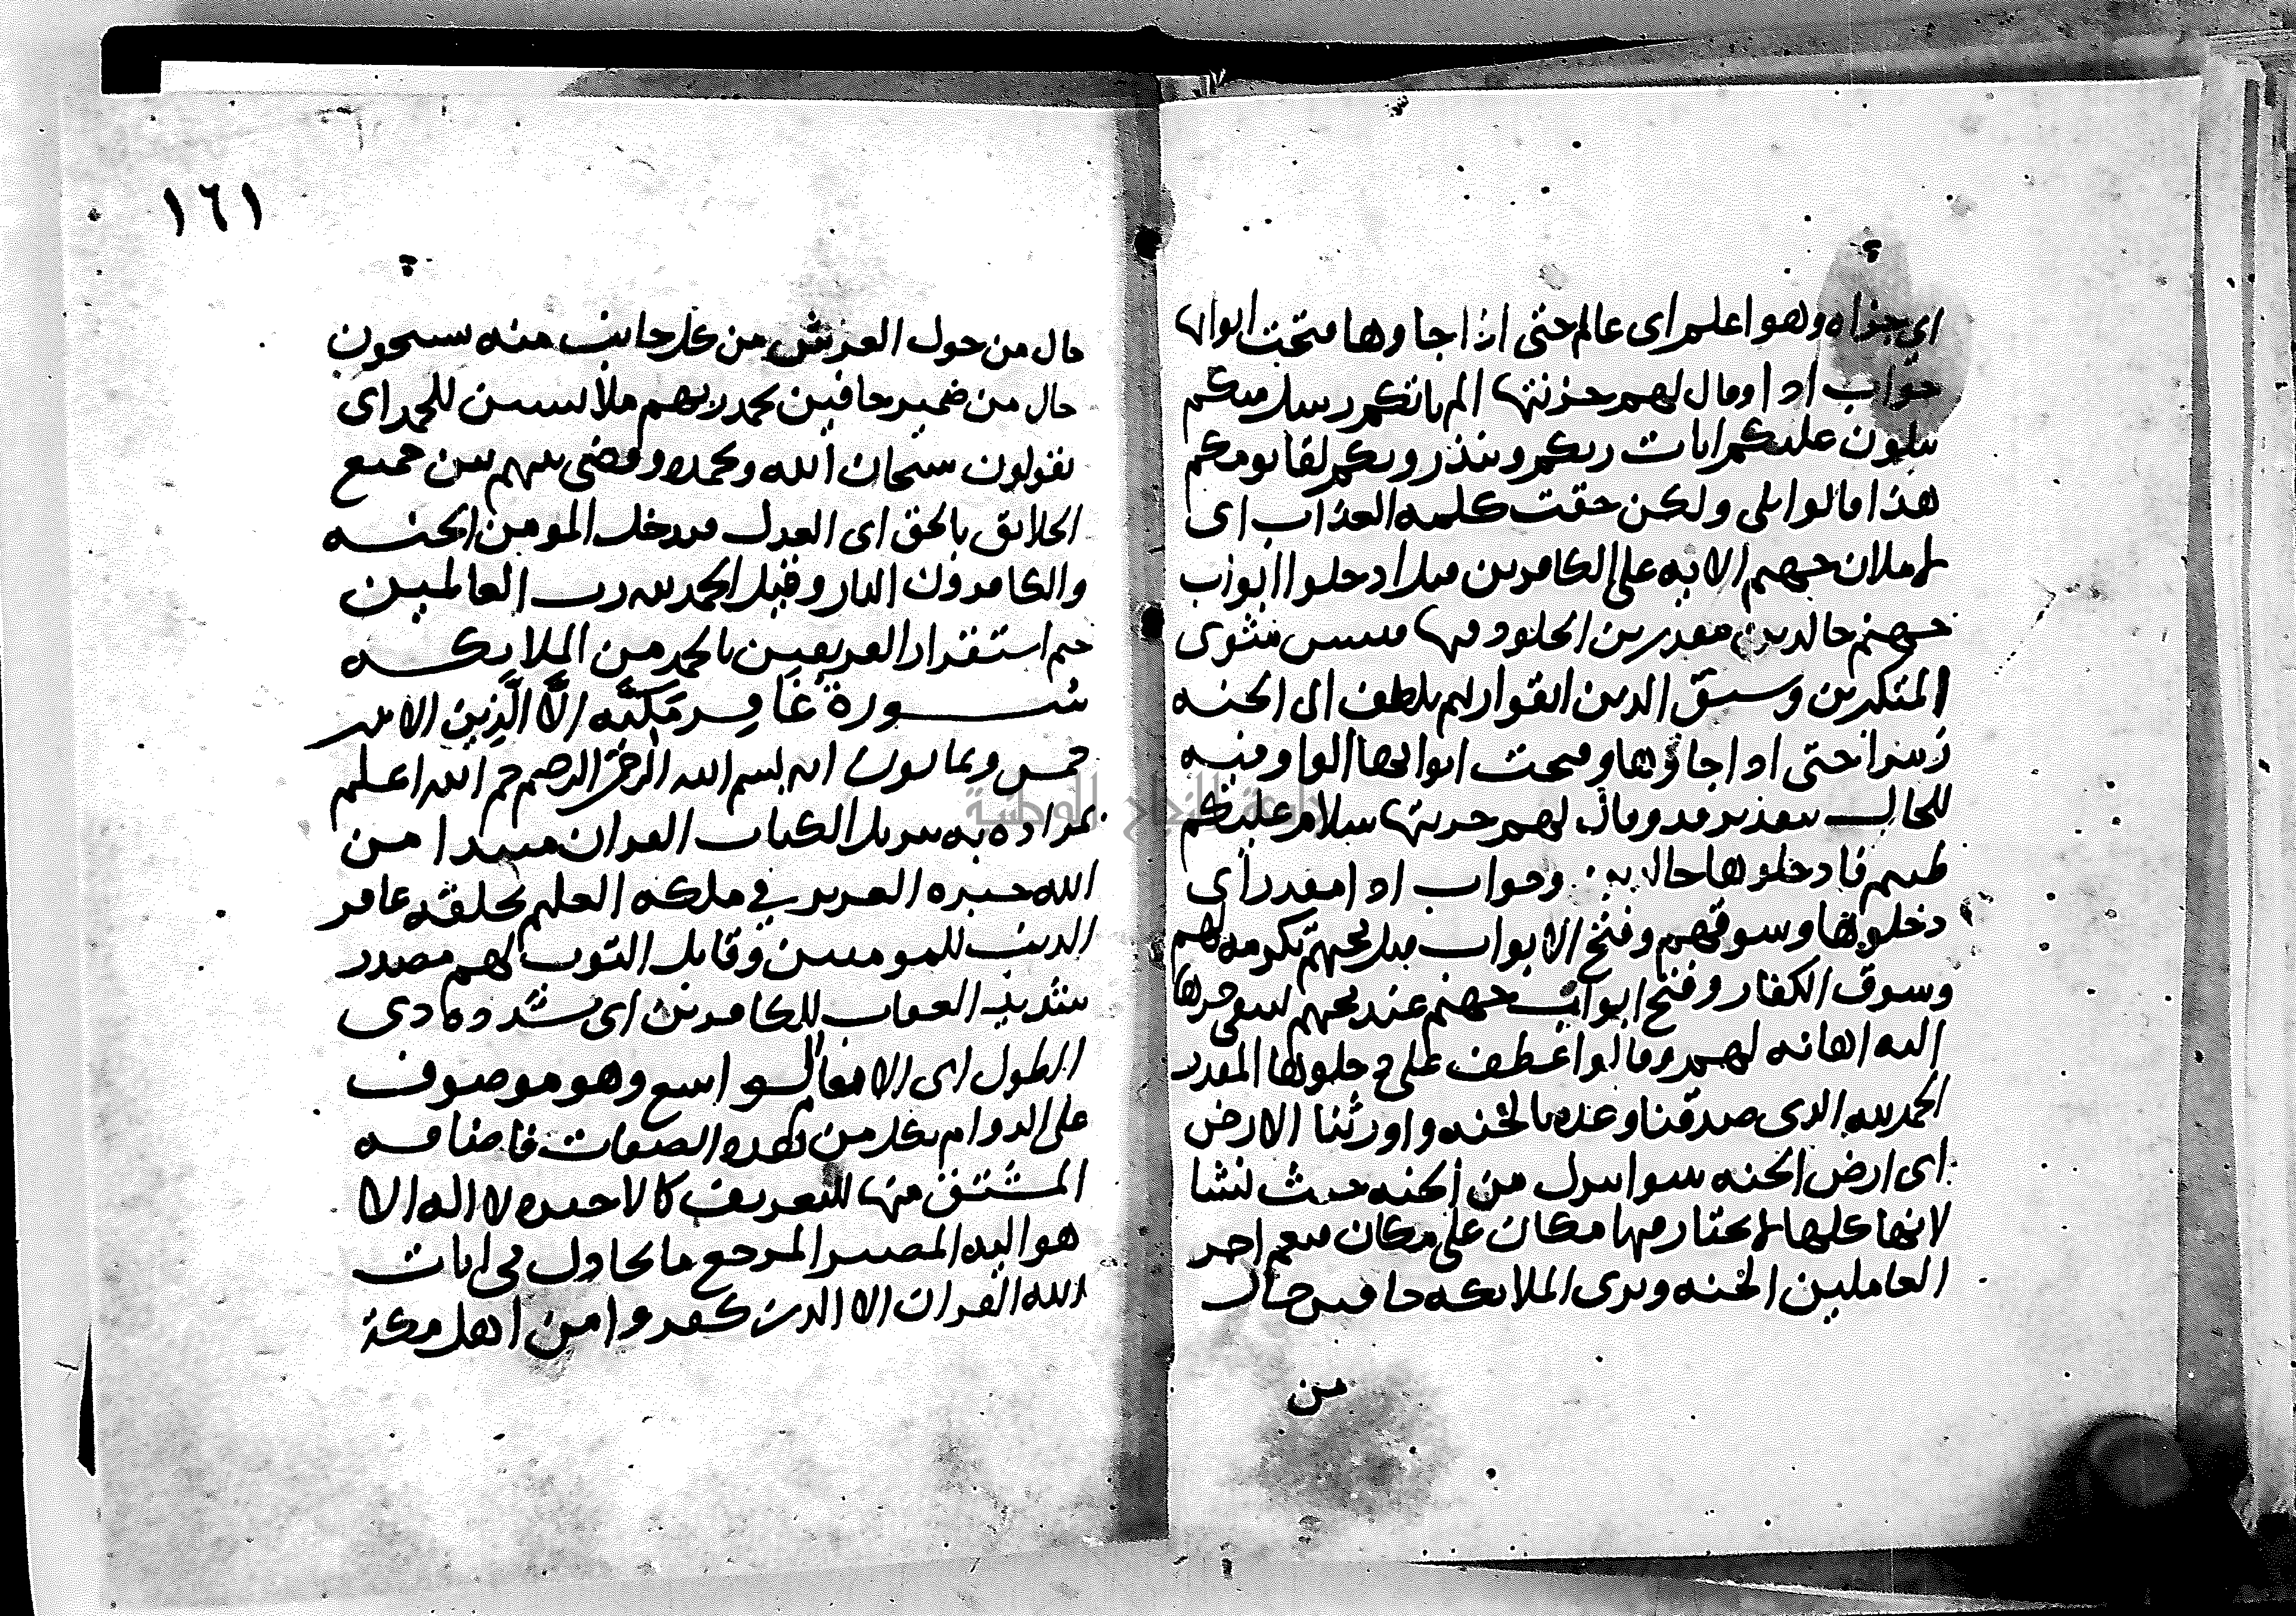 اي جزاه وهو اعلم اى عالم حتى اذا جاوها فتحت ابوابها
جواب اذا وقال لهم خزنتها الم ياتكم رسل منكم
يتلون عليكم ايات ربكم وينذرونكم لقا يومكم
هذا قالوا بلى ولكن حقت كلمه العذاب اى
لاملان جهنم الايه على الكافرين قيل ادخلوا ابواب
جهنم خالدين مقدرين الخلود فيها فبيس مثوى
المتكبرين وسيق الذين اتقوا ربهم بلطف الى الجنه
زمرا حتى اذا جاوها وفتحت ابوابها الواو فيه
للحال بتقدير قد وقال لهم خزنتها سلام عليكم
طبتم فادخلوها خالدين وجواب اذا مقدر اى
دخلوها وسوقهم وفتح الابواب قبل مجيهم تكرمه لهم
وسوق الكفار وفتح ابواب جهنم عند مجيهم ليبقى حرها
اليه اهانه لهم وقالوا عطف على دخلوها المقدر
الحمد لله الذى صدقنا وعده بالجنه واورثنا الارض
اى ارض الجنه نتبوا ننزل من الجنه حيث نشا
لانها كلها لا يختار فيها مكان على مكان فنعم اجر
العاملين الجنه وترى الملايكه حافين حال
من
١٦١
حال من حول العرش من كل جانب منه يسبحون
حال من ضمير حافين بحمد ربهم ملابسين للحمد اى
يقولون سبحان الله وبحمده وقضى بينهم بين جميع
الخلايق بالحق اى العدل فيدخل المومنن الجنه
والكافرون النار وقيل الحمد لله رب العالمين
ختم استقرار الفريقين بالحمد من الملايكه
سورة غافر مكيه الا الذين الايتين
خمس وثمانون ايه بسم الله الرحمن الرحيم حم الله اعلم
بمراده به تنزيل الكتاب القران مبتدا من
الله خبره العزيز في ملكه العليم بخلقه غافر
الذنب للمومنين وقابل التوب لهم مصدر
شديد العقاب للكافرين اى مشدده ذى
الطول اى الانعام الواسع وهو موصوف
على الدوام بكل من هذه الصفات فاضافه
المشتق منها للتعريف كالاخيره لا اله الا
هو اليه المصير المرجع ما يجادل فى ايات
الله القران الا الذين كفروا من اهل مكة